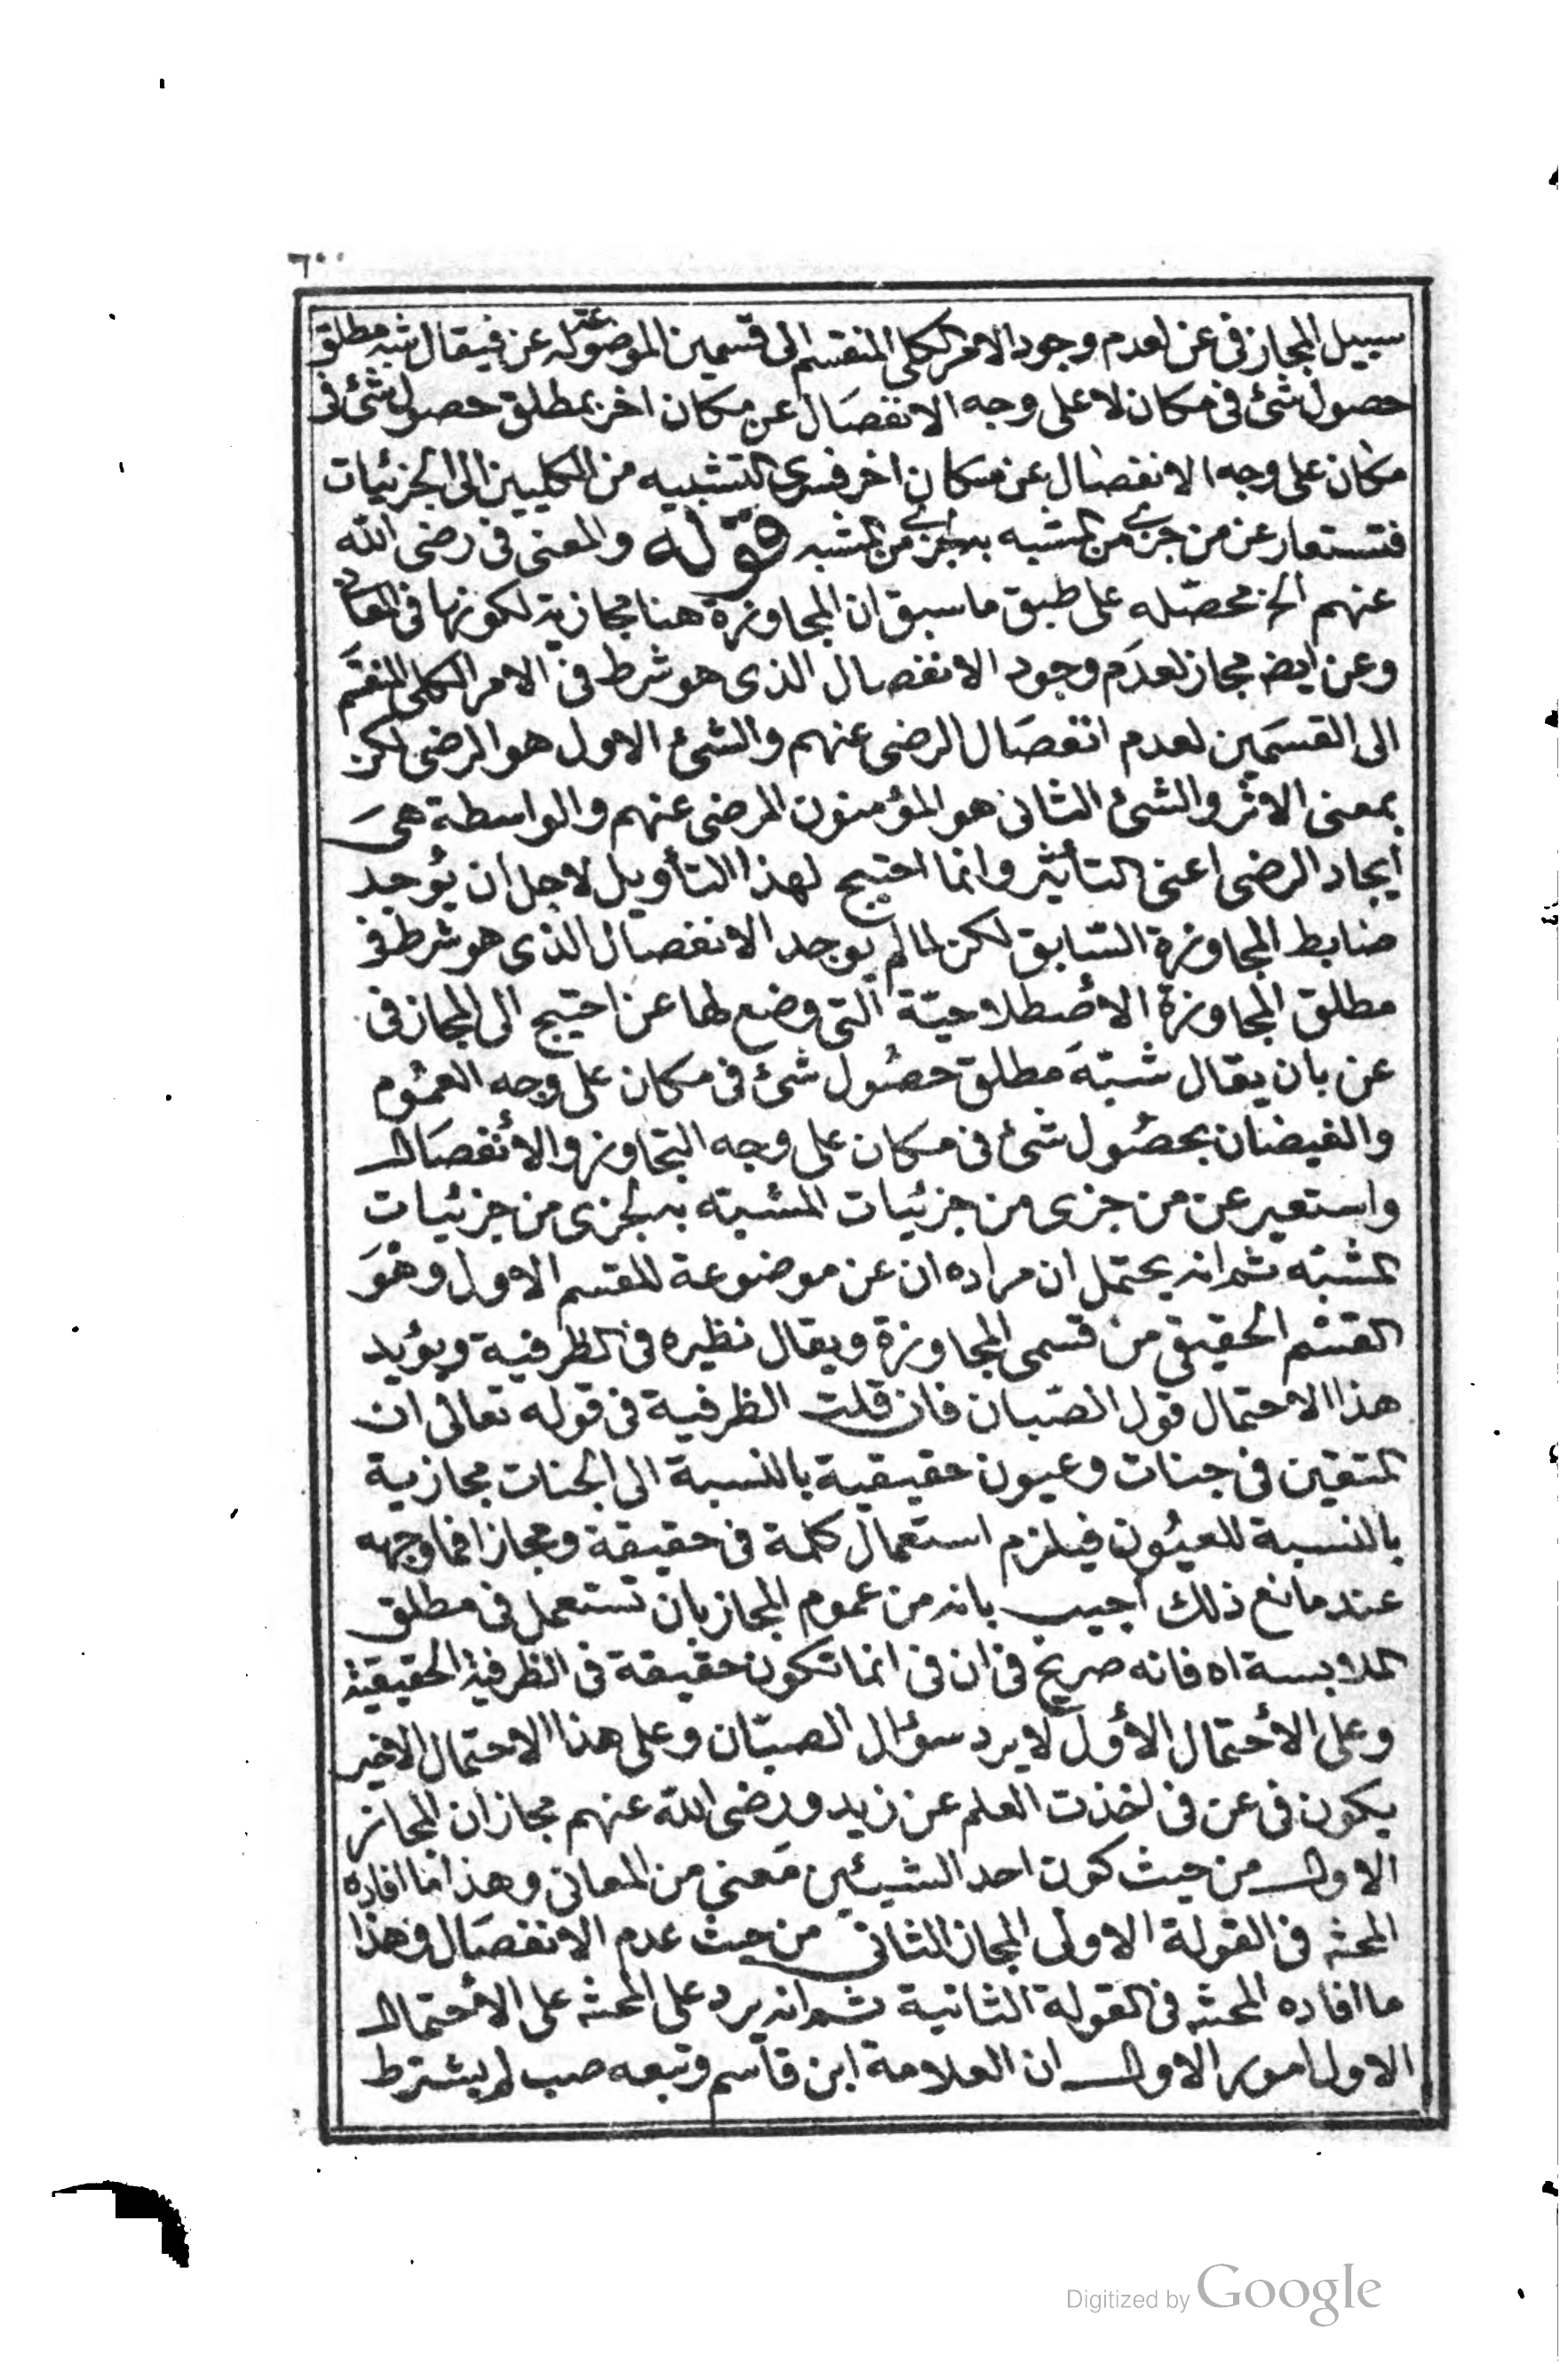 ٦٠٠
سبيل المجاز فى عن لعدم وجود الامر الكلى المنقسم الى قسمين الموضوعة له عن فيقال شبه مطلق
حصول شئ فى مكان لا على وجه الانفصال عن مكان اخر بمطلق حصول شئ فى
مكان على وجه الانفصال عن مكان اخر فسرى التشبيه من الكليين الى الجزئيات
فتستعار عن من جزئى من المشبه به لجزئى من المشبه قوله والمعنى فى رضى الله
عنهم الخ محصّله على طبق ما سبق ان المجاوزة هنا مجازية لكونها فى المعانى
وعن ايض مجاز لعدَم وجود الانفصال الذى هو شرط فى الامر الكلى المنقسَم
الى القسَمين لعدم انفصَال الرضى عنهم والشئ الاول هو الرضى لكن
بمعنى الاثر والشئ الثانى هو المؤمنون المرضى عنهم والواسطة هىَ
أيجاد الرضى اعنى التأثير وانما احتيج لهذا التأويل لاجل ان يُوجد
ضابط المجاوزة السّابق لكن لما لم يوجد الانفصال الذى هو شرط فى
مطلق المجاوزة الأصطلاحيّة التى وضع لها عن احتيج الى المجاز فى
عن بان يقال شبّهَ مطلق حصُول شئ فى مكان على وجه العمُوم
والفيضان بحصُول شئ فى مكان على وجه التجاوز والأنفصَال
واستعير عن من جزئى من جزئيات المشبّه به لجزئى من جزئيات
المشبّه ثم انه يحتمل ان مراده ان عن موضوعة للقسم الاول وهوَ
القسْم الحقيقى من قسمى المجاوزة ويقال نظيره فى الظرفية ويؤيد
هذا الاحتمال قول الصّبان فان قلت الظرفية فى قوله تعالى ان
المتقين فى جنات وعيون حقيقية بالنسبة الى الجنات مجازية
بالنسبة للعيُون فيلزم استعمال كلمة فى حقيقة ومجازا فما وجهه
عند مانع ذلك اجيب بانه من عموم المجاز بان تستعمل فى مطلق
الملابسة اه فانه صريح فى ان فى انما تكون حقيقة فى الظرفية الحقيقية
وعلى الأحتمال الأول لا يرد سؤال الصبّان وعلى هذا الاحتمال الاخير
يكون فى عن فى اخذت العلم عن زيد ورضى الله عنهم مجازان المجاز
الاول من حيث كون احد الشيئين مَعنى من المعانى وهذا ما افاده
المحشى فى القولة الاولى المجاز الثانى من حيث عدم الانفصَال وهذا
ما افاده المحشى فى القولة الثانية ثم انه يرد على المحشى على الأحتمال
الاول امور الاول ان العلامة ابن قاسم وتبعه صب لم يشترط
Digitized by Google